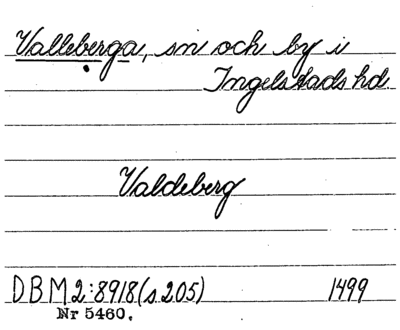 Valleberga, sn och by i
Ingelstads hd.
Valdeberg
DBM 2:8918 (s 205) 1499
Nr 5460.